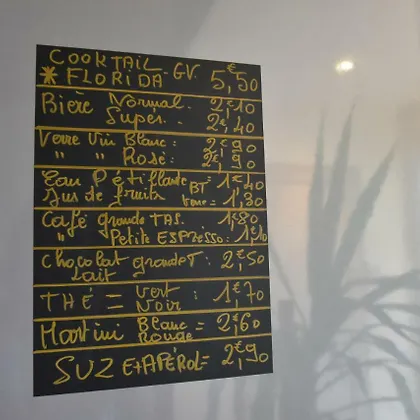 COOKTAIL
* FLORIDA GV. 5,€50
Bière Normal. 2,€10
Super. 2,€40
Verre Vin Blanc: 2,€90
" " Rosé: 2,€90
Eau Pétillante BT 1€40
Jus de fruits Verre = 1,€30
Café grande TAS. 1,€80
" Petite ESPRESSO: 1€10
chocolat grande T: 2,€50
Lait
THÉ = Vert 1€,70
Noir:
Martini Blanc = 2,€60
Rouge
SUZ Et APÉROL= 2,€90